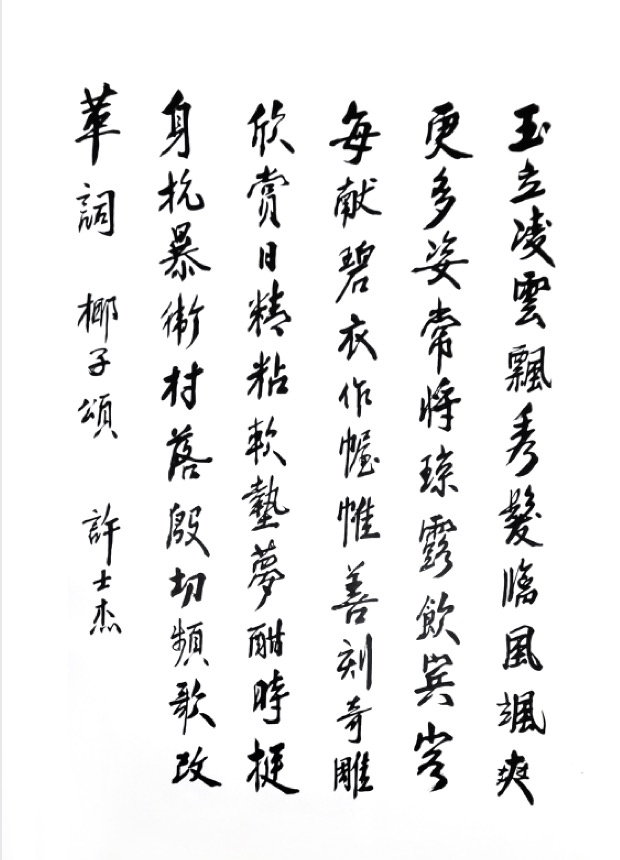 玉立凌雲飄秀髮臨風颯爽
更多姿常將琼露飲賓客
每献碧衣作幄帷善刻奇雕
欣賞日精粘軟墊夢酣時挺
身抗暴衛村落殷切頻歌改
革詞 椰子頌 許士杰